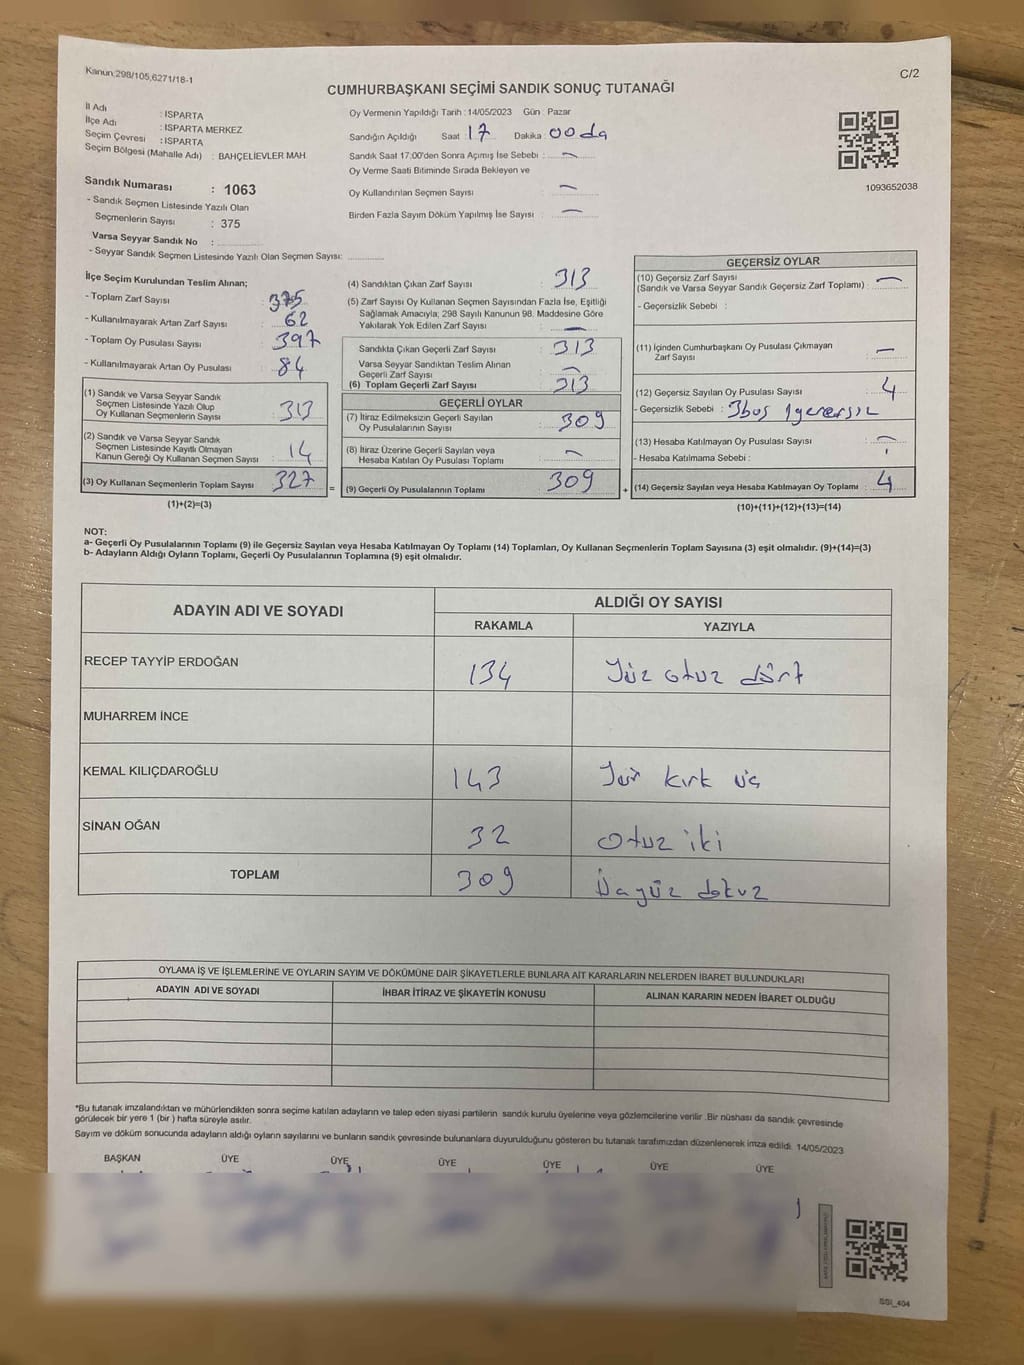 Kanun;298/105,6271/18-1
C/2
CUMHURBAŞKANI SEÇİMİ SANDIK SONUÇ TUTANAĞI
İl Adı : ISPARTA
İlçe Adı : ISPARTA MERKEZ
Seçim Çevresi : ISPARTA
Seçim Bölgesi (Mahalle Adı) : BAHÇELİEVLER MAH.
Sandık Numarası : 1063
- Sandık Seçmen Listesinde Yazılı Olan
Seçmenlerin Sayısı : 375
Varsa Seyyar Sandık No :
- Seyyar Sandık Seçmen Listesinde Yazılı Olan Seçmen Sayısı:
Oy Vermenin Yapıldığı Tarih : 14/05/2023 Gün : Pazar
Sandığın Açıldığı Saat : 17 Dakika : 00 da
Sandık Saat 17:00'den Sonra Açımış İse Sebebi : —
Oy Verme Saati Bitiminde Sırada Bekleyen ve
Oy Kullandırılan Seçmen Sayısı : —
Birden Fazla Sayım Döküm Yapılmış İse Sayısı : —
1093652038
İlçe Seçim Kurulundan Teslim Alınan;
- Toplam Zarf Sayısı : 375
- Kullanılmayarak Artan Zarf Sayısı : 62
- Toplam Oy Pusulası Sayısı : 397
- Kullanılmayarak Artan Oy Pusulası : 84
(1) Sandık ve Varsa Seyyar Sandık
Seçmen Listesinde Yazılı Olup
Oy Kullanan Seçmenlerin Sayısı : 313
(2) Sandık ve Varsa Seyyar Sandık
Seçmen Listesinde Kayıtlı Olmayan
Kanun Gereği Oy Kullanan Seçmen Sayısı : 14
(3) Oy Kullanan Seçmenlerin Toplam Sayısı : 327
(1)+(2)=(3)
(4) Sandıktan Çıkan Zarf Sayısı : 313
(5) Zarf Sayısı Oy Kullanan Seçmen Sayısından Fazla İse, Eşitliği
Sağlamak Amacıyla; 298 Sayılı Kanunun 98. Maddesine Göre
Yakılarak Yok Edilen Zarf Sayısı : —
Sandıkta Çıkan Geçerli Zarf Sayısı : 313
Varsa Seyyar Sandıktan Teslim Alınan
Geçerli Zarf Sayısı : —
(6) Toplam Geçerli Zarf Sayısı : 313
GEÇERLİ OYLAR
(7) İtiraz Edilmeksizin Geçerli Sayılan
Oy Pusulalarının Sayısı : 309
(8) İtiraz Üzerine Geçerli Sayılan veya
Hesaba Katılan Oy Pusulası Toplamı : —
= (9) Geçerli Oy Pusulalarının Toplamı : 309
GEÇERSİZ OYLAR
(10) Geçersiz Zarf Sayısı
(Sandık ve Varsa Seyyar Sandık Geçersiz Zarf Toplamı) : —
- Geçersizlik Sebebi :
(11) İçinden Cumhurbaşkanı Oy Pusulası Çıkmayan
Zarf Sayısı : —
(12) Geçersiz Sayılan Oy Pusulası Sayısı : 4
- Geçersizlik Sebebi : 3boş 1geçersiz
(13) Hesaba Katılmayan Oy Pusulası Sayısı : —
- Hesaba Katılmama Sebebi :
+ (14) Geçersiz Sayılan veya Hesaba Katılmayan Oy Toplamı : 4
(10)+(11)+(12)+(13)=(14)
NOT:
a- Geçerli Oy Pusulalarının Toplamı (9) ile Geçersiz Sayılan veya Hesaba Katılmayan Oy Toplamı (14) Toplamları, Oy Kullanan Seçmenlerin Toplam Sayısına (3) eşit olmalıdır. (9)+(14)=(3)
b- Adayların Aldığı Oyların Toplamı, Geçerli Oy Pusulalarının Toplamına (9) eşit olmalıdır.
ADAYIN ADI VE SOYADI ALDIĞI OY SAYISI
RAKAMLA YAZIYLA
RECEP TAYYİP ERDOĞAN 134 Yüz otuz dört
MUHARREM İNCE
KEMAL KILIÇDAROĞLU 143 Yüz kırk üç
SİNAN OĞAN 32 Otuz iki
TOPLAM 309 Üçyüz dokuz
OYLAMA İŞ VE İŞLEMLERİNE VE OYLARIN SAYIM VE DÖKÜMÜNE DAİR ŞİKAYETLERLE BUNLARA AİT KARARLARIN NELERDEN İBARET BULUNDUKLARI
ADAYIN ADI VE SOYADI İHBAR İTİRAZ VE ŞİKAYETİN KONUSU ALINAN KARARIN NEDEN İBARET OLDUĞU
*Bu tutanak imzalandıktan ve mühürlendikten sonra seçime katılan adayların ve talep eden siyasi partilerin sandık kurulu üyelerine veya gözlemcilerine verilir .Bir nüshası da sandık çevresinde
görülecek bir yere 1 (bir ) hafta süreyle asılır.
Sayım ve döküm sonucunda adayların aldığı oyların sayılarını ve bunların sandık çevresinde bulunanlara duyurulduğunu gösteren bu tutanak tarafımızdan düzenlenerek imza edildi. 14/05/2023
BAŞKAN ÜYE ÜYE ÜYE ÜYE ÜYE ÜYE
SSI_404